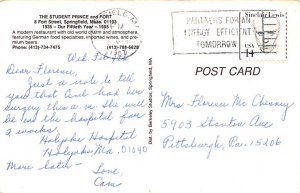 THE STUDENT PRINCE and FORT
8 Fort Street, Springfield, Mass. 01103
1935 - Our Fiftieth Year - 1985
A modern restaurant with old world charm and atmosphere,
featuring German food specialties, imported wines, and premier beers.
Phone: (413)-734-7475 (413)-788-6628
PARTNERS FOR AN
ENERGY EFFICIENT
TOMORROW
Sinclair Lewis
USA
14
POST CARD
Dist. by Berkeley Studios, Springfield, MA.
Wed Feb
Dear Florence,
Just a note to tell
you that Carl had her
surgery this a.m. She will
be in the hospital for
a week.
Holyoke Hospital
Holyoke, Ma. 01040
More later - Love,
Cam
Mrs Florence Mc Chesney
5903 Stanton Ave
Pittsburgh, Pa. 15206